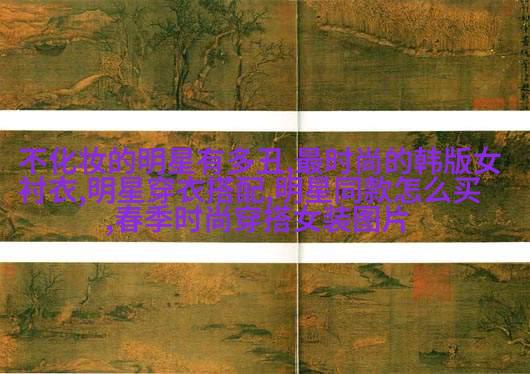 不化妆的明星有多丑,最时尚的韩版女
衬衣,明星穿衣搭配,明星同款怎么买
,春季时尚穿搭女装图片